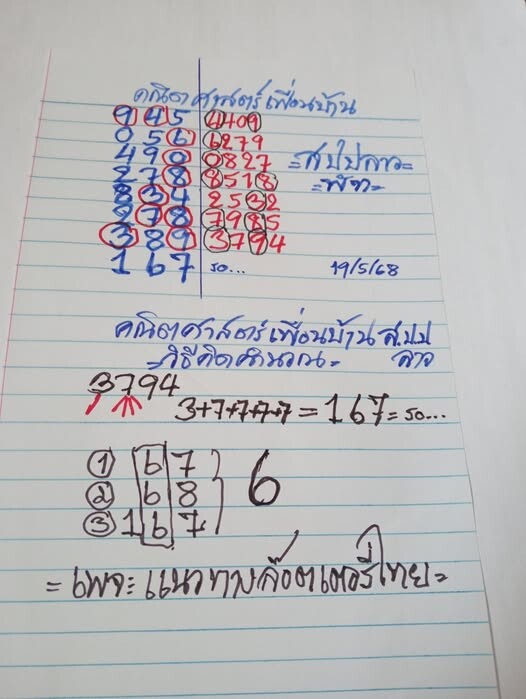 คณิตศาสตร์เพื่อนบ้าน
945 4409
056 6279
490 0827
278 8518
834 2532
978 7985
389 3794
167 รอ...
=ส.ป.ป.ลาว=
19/5/68
คณิตศาสตร์เพื่อนบ้าน ส.ป.ป
=วิธีคิดคำนวณ= ลาว
3794
3+7+7+7+7 = 167 = รอ...
① 67
② 68 6
③ 167
= เพจะแนวทางล็อตเตอรี่ไทย =